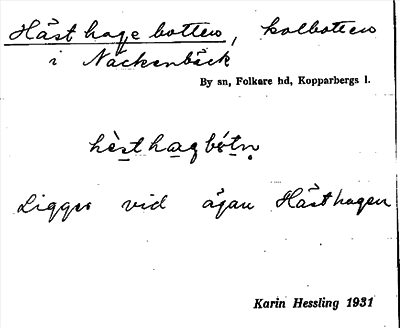 Hästhagebotten, kolbotten
i Näckenbäck
By sn, Folkare hd, Kopparbergs l.
hèsthagbótn.
Ligger vid ägan Hästhagen
Karin Hessling 1931